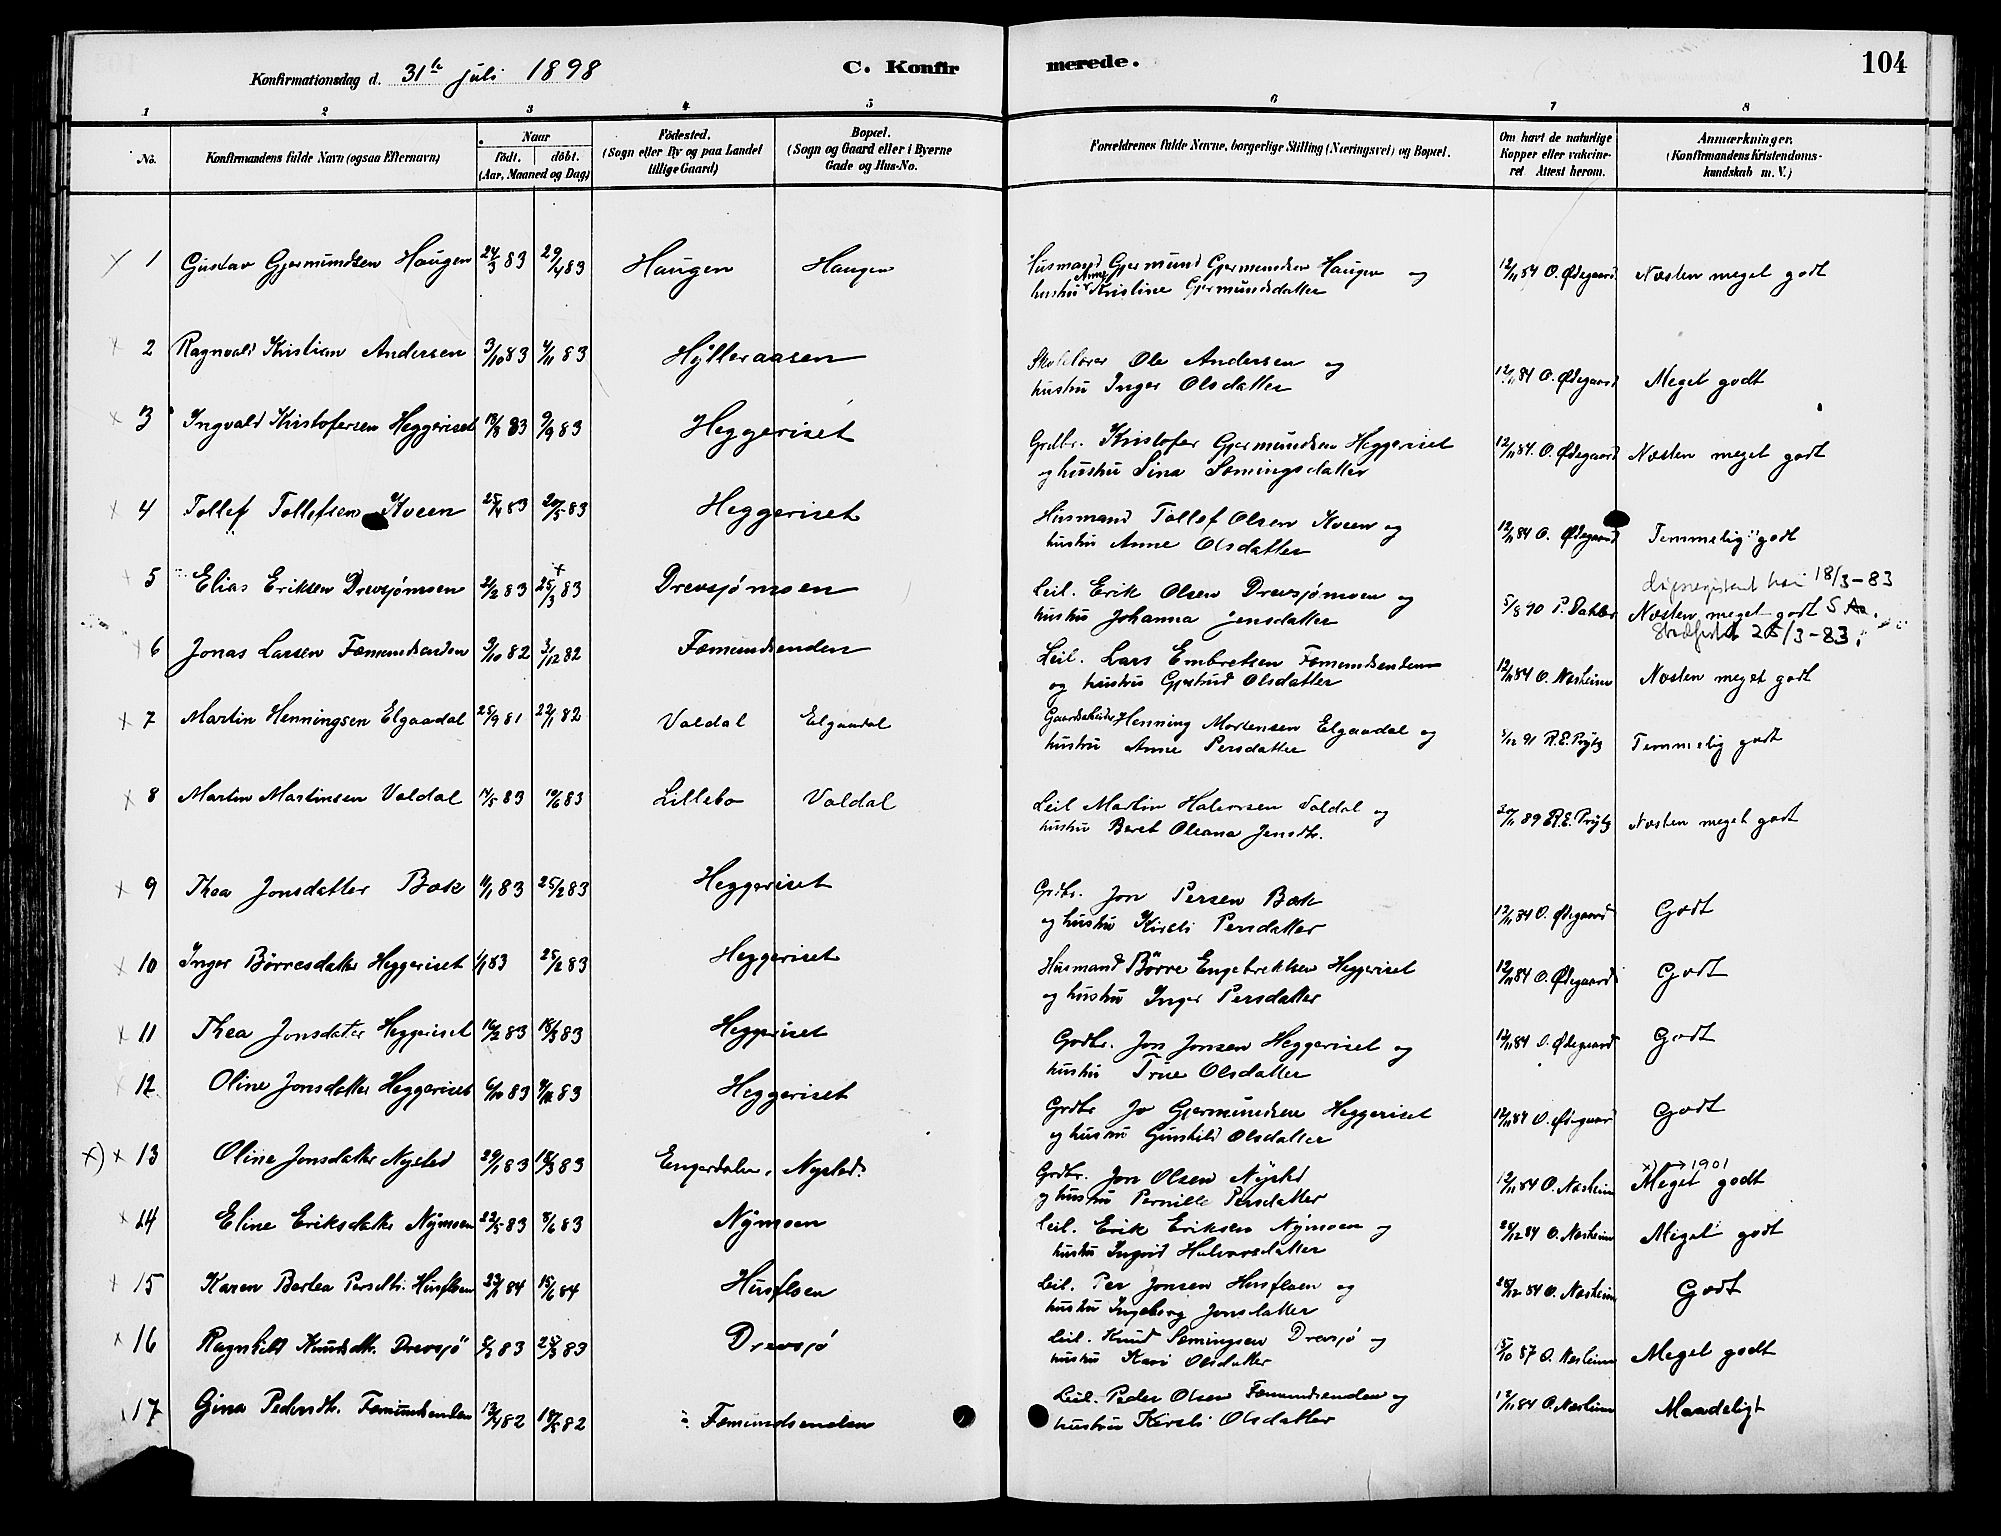 Konfirmationsdag d. 31te juli 1898 C. Konfirmerede. 104
1 2 3 4 5 6 7 8
No. Konfirmandens fulde Navn (ogsaa Efternavn) Naar födt. döbt. (Aar, Maaned og Dag) Födested. (Sogn eller By og paa Landet tillige Gaard) Bopæl. (Sogn og Gaard eller i Byerne Gade og Hus-No. Forældrenes fulde Navne, borgerlige Stilling (Næringsvei) og Bopæl. Om havt de naturlige Kopper eller vakcineret Attest herom. Anmærkninger. (Konfirmandens Kristendomskundskab m. V.)
1 Gustav Gjermundsen Haugen 24/3 83 29/4 83 Haugen Haugen Husmand Gjermund Gjermundsen Haugen og 12/11 84 O. Ødegaard Næsten meget godt
hustru Anne Kristine Gjermundsdatter
2 Ragnvald Kristian Andersen 3/10 83 4/11 83 Hylleraasen Skolelærer Ole Andersen og 12/11 84 O. Ødegaard Meget godt
hustru Inger Olsdatter
3 Ingvald Kristofersen Heggeriset 18/8 83 9/9 83 Heggeriset Grdbr. Kristofer Gjermundsen Heggeriset 12/11 84. O. Ødegaard Næsten meget godt
og hustru Sina Semingsdatter
4 Tollef Tollefsen Kveen 25/4 83 20/5 83 Heggeriset Husmand Tollef Olsen Kveen og 12/11 84 O. Ødegaard Temmelig godt
hustru Anne Olsdatter
5 Elias Eriksen Drevsjømoen 2/2 83 25/3 83 Drevsjømoen Leil. Erik Olsen Drevsjømoen og 5/8 90 P. Dahler Næsten meget godt
18/3-83
hustru Johanna Jensdatter
25/3-83.
6 Jonas Larsen Fæmundsenden 9/10 82 3/12 82 Fæmundsenden Leil. Lars Embretsen Fæmundsenden 12/11 84 O. Næsheim Næsten meget godt
og hustru Gjertrud Olsdatter
7 Martin Henningsen Elgaadal 25/9 81 22/1 82 Valdal Elgaadal Henning Mortensen Elgaadal og 1/12 91 R.E. Prytz Temmelig godt
hustru Anne Persdatter
8 Martin Martinsen Valdal 17/5 83 10/6 83 Lillebo Valdal Leil Martin Halvorsen Valdal og 20/11 89 R.E. Prytz Næsten meget godt
hustru Beret Oleana Jensdtr.
9 Thea Jonsdatter Bak 11/1 83 25/2 83 Heggeriset Grdbr. Jon Persen Bak 12/11 84 O. Ødegaard Godt
og hustru Kirsti Persdatter
10 Inger Børresdatter Heggeriset 1/1 83 25/2 83 Heggeriset Husmand Børre Engebrektsen Heggeriset 12/11 84 O. Ødegaard Godt
og hustru Inger Persdatter
11 Thea Jonsdatter Heggeriset 16/2 83 18/3 83 Heggeriset Grdbr. Jon Jonsen Heggeriset og 12/11 84 O. Ødegaard Godt
hustru Trine Olsdatter
12 Oline Jonsdatter Heggeriset 6/10 83 4/11 83 Heggeriset Grdbr Jo Gjermundsen Heggeriset 12/11 84 O. Ødegaard Godt
og hustru Gunhild Olsdatter
x) 13 Oline Jonsdatter Nysted 29/1 83 18/3 83 Engerdalen, Nysted. Grdbr. Jon Olsen Nysted 12/11 84 O. Næsheim x) → 1901 Meget godt
og hustru Pernille Persdatter
14 Eline Eriksdatter Nymoen 22/5 83 8/6 83 Nymoen Leil. Erik Eriksen Nymoen og 28/12 84 O. Næsheim Meget godt
hustru Ingrid Halvorsdatter
15 Karen Bertea Persdtr. Husfloen 23/1 84 15/6 84 Husfloen Leil. Per Jonsen Husfloen og 28/12 84 O. Næsheim Godt
hustru Ingeborg Jonsdatter
16 Ragnhild Knudsdtr. Drevsjö 5/3 83 25/3 83 Drevsjö Leil. Knud Semingsen Drevsjö og 15/10 87 O. Næsheim Meget godt
hustru Kari Olsdatter
17 Gina Pedersdtr. Fæmundsenden 13/4 82 18/5 82 Fæmundsenden Leil. Peder Olsen Fæmundsenden og 12/11 84 O. Næsheim Maadeligt
hustru Kirsti Olsdatter